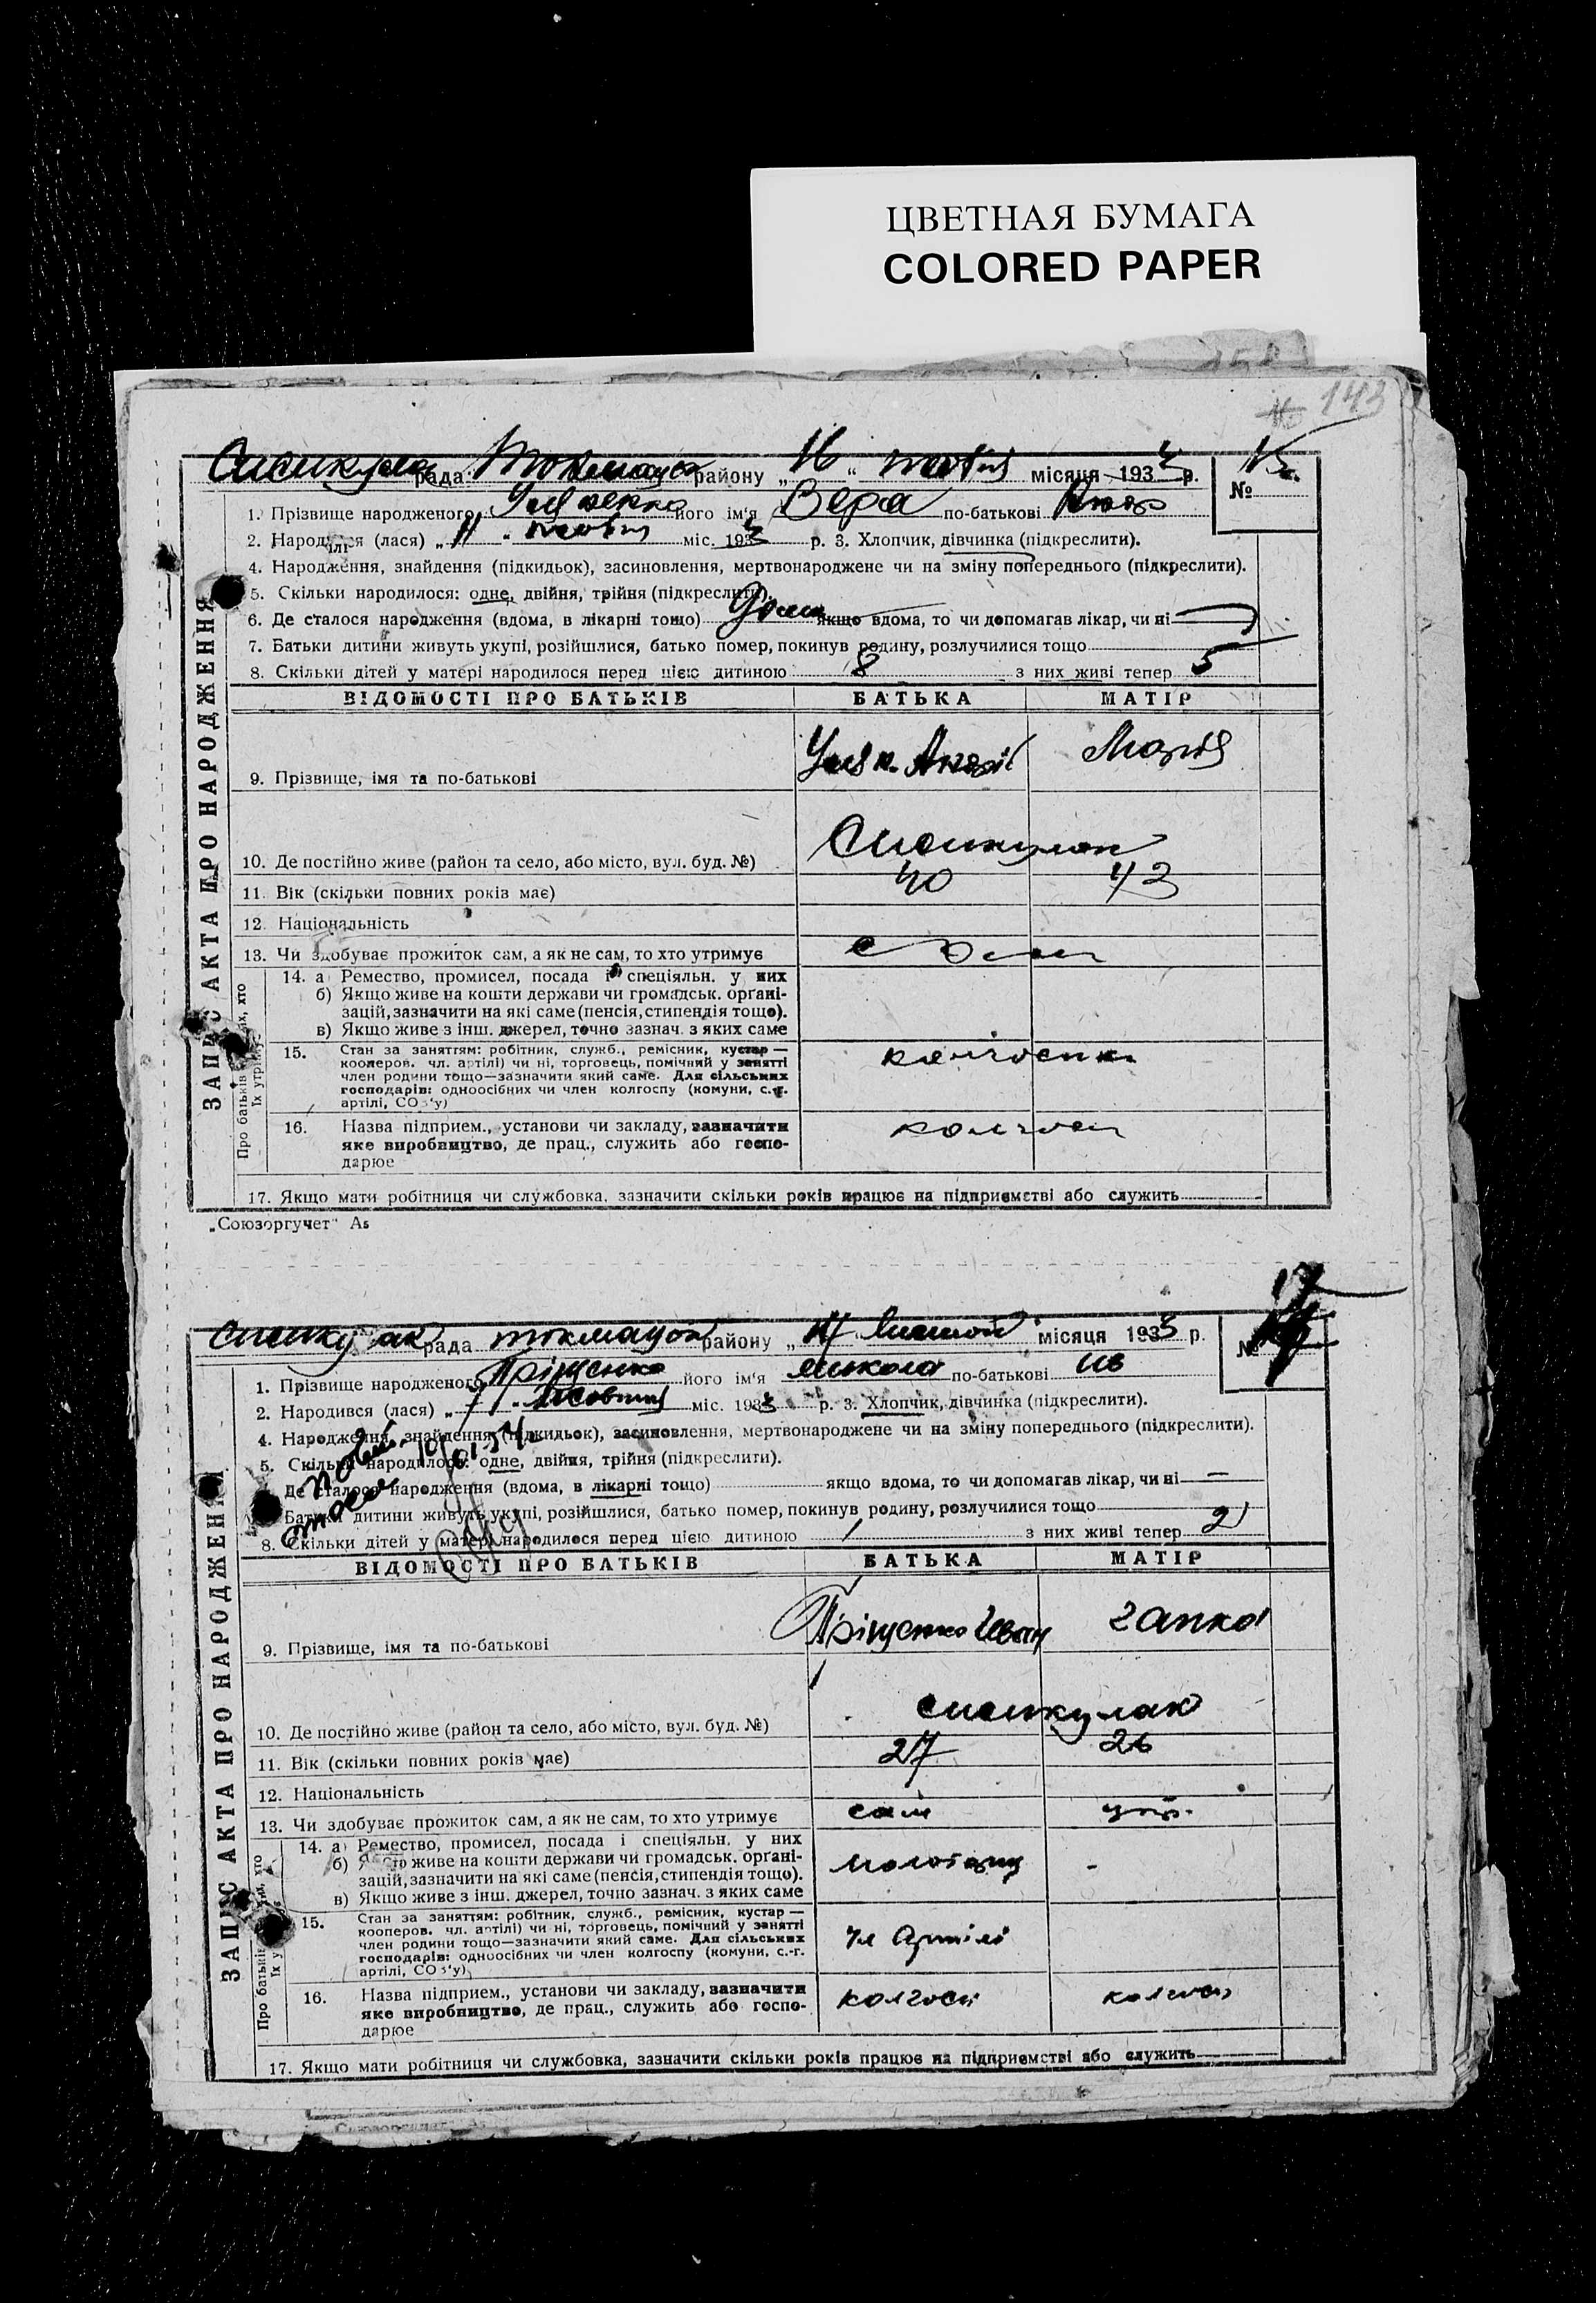 ЦВЕТНАЯ БУМАГА
COLORED PAPER
143
рада району „16“ місяця 1933 р. №
1. Прізвище народженого його ім'я Вера по-батькові
2. Народився (лася) „11“ міс. 1933 р. 3. Хлопчик, дівчинка (підкреслити).
4. Народження, знайдення (підкидьок), засиновлення, мертвонароджене чи на зміну попереднього (підкреслити).
5. Скільки народилося: одне, двійня, трійня (підкреслити).
6. Де сталося народження (вдома, в лікарні тощо) якщо вдома, то чи допомагав лікар, чи ні —
7. Батьки дитини живуть укупі, розійшлися, батько помер, покинув родину, розлучилися тощо
8. Скільки дітей у матері народилося перед цією дитиною 8 з них живі тепер 5
ЗАПИС АКТА ПРО НАРОДЖЕННЯ
ВІДОМОСТІ ПРО БАТЬКІВ БАТЬКА МАТІР
9. Прізвище, імя та по-батькові Андрій Марія
10. Де постійно живе (район та село, або місто, вул. буд. №)
11. Вік (скільки повних років має) 40 43
12. Національність
13. Чи здобуває прожиток сам, а як не сам, то хто утримує
14. а) Ремество, промисел, посада і спеціяльн. у них
б) Якщо живе на кошти держави чи громадськ. органі-
зацій, зазначити на які саме (пенсія, стипендія тощо).
в) Якщо живе з інш. джерел, точно зазнач. з яких саме
15. Стан за заняттям: робітник, служб., ремісник, кустар —
кооперов. чл. артілі) чи ні, торговець, помічний у занятті
член родини тощо—зазначити який саме. Для сільських
господарів: одноосібних чи член колгоспу (комуни, с.-г.
артілі, СОЗ'у)
16. Назва підприєм., установи чи закладу, зазначити
яке виробництво, де прац., служить або госпо-
дарює колгосп
17. Якщо мати робітниця чи службовка, зазначити скільки років працює на підприємстві або служить
„Союзоргучет“ А5
рада району місяця 1933 р. №
1. Прізвище народженого Пріщенко його ім'я Микола по-батькові Ив
2. Народився (лася) „7“ жовтня міс. 1933 р. 3. Хлопчик, дівчинка (підкреслити).
4. Народження, знайдення (підкидьок), засиновлення, мертвонароджене чи на зміну попереднього (підкреслити).
5. Скільки народилося: одне, двійня, трійня (підкреслити).
Де сталося народження (вдома, в лікарні тощо) якщо вдома, то чи допомагав лікар, чи ні —
Батьки дитини живуть укупі, розійшлися, батько помер, покинув родину, розлучилися тощо
8. Скільки дітей у матері народилося перед цією дитиною 1 з них живі тепер 2
ЗАПИС АКТА ПРО НАРОДЖЕННЯ
ВІДОМОСТІ ПРО БАТЬКІВ БАТЬКА МАТІР
9. Прізвище, імя та по-батькові Пріщенко Иван Гапка
10. Де постійно живе (район та село, або місто, вул. буд. №) Сисикулак
11. Вік (скільки повних років має) 27 26
12. Національність
13. Чи здобуває прожиток сам, а як не сам, то хто утримує сам утр.
14. а) Ремество, промисел, посада і спеціяльн. у них
б) Якщо живе на кошти держави чи громадськ. органі-
зацій, зазначити на які саме (пенсія, стипендія тощо). -
в) Якщо живе з інш. джерел, точно зазнач. з яких саме
15. Стан за заняттям: робітник, служб., ремісник, кустар —
кооперов. чл. артілі) чи ні, торговець, помічний у занятті
член родини тощо—зазначити який саме. Для сільських
господарів: одноосібних чи член колгоспу (комуни, с.-г.
артілі, СОЗ'у) чл Артілі
16. Назва підприєм., установи чи закладу, зазначити
яке виробництво, де прац., служить або госпо-
дарює колгосп колгосп
17. Якщо мати робітниця чи службовка, зазначити скільки років працює на підприємстві або служить